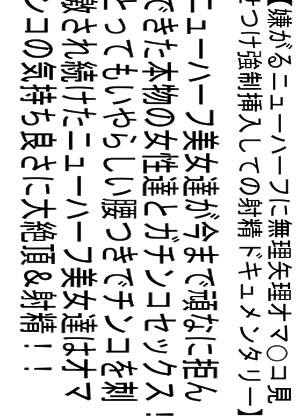 【嫌がるニューハーフに無理矢理オマ○コ見
せつけ強制挿入しての射精ドキュメンタリー】
ニューハーフ美女達が今まで頑なに拒ん
できた本物の女性達とガチンコセックス!
とってもいやらしい腰つきでチンコを刺
激され続けたニューハーフ美女達はオマ
ンコの気持ち良さに大絶頂&射精!!